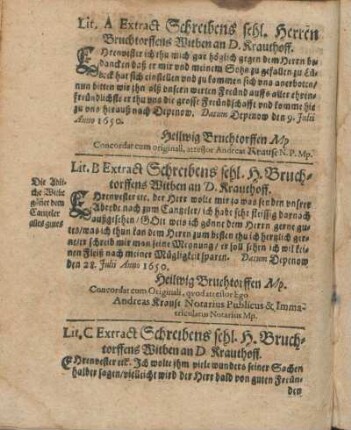 Lit. A Extract Schreibens sehl. Herren
Bruchtorffens Witben an D. Krauthoff.
EHrenvester ich thu mich gar höglich gegen dem Herrn be-
dancken daß er mit und meinem Sohn zu gefallen zu Lü-
beck hat sich einstellen und zu kommen sich vns anerboten/
nun bitten wir ihn alß unsern werten Freünd auffs aller ehrin-
freündlichste er thu vns die grosse Freündschafft und komme hie
zu vns herauß nach Depenow. Datum Depenow den 9. Julii
Anno 1650.
Heilwig Bruchtorffen Mp
Concordat cum originali, attestor Andreas Krause N. P. Mp.
Lit. B Extract Schreibens sehl. H. Bruch-
torffens Witben an D. Krauthoff.
EHrenvester etc. der Herr wolte mir zu was senden unsere
Abrede nach zum Cantzeler/ ich habe sehr fleissig darnach
außgesehen/ Gott weis ich gönne dem Herrn gerne gu-
tes/ was ich thun kan dem Herrn zum besten thu ich hertzlich ger-
ne er schreib mir man seine Meynung/ er soll sehen ich wil keinen
Fleiß nach meiner Mügligkeit sparen. Datum Depenow
den 28. Julii Anno 1650.
Heilwig Bruchtorffen Mp.
Concordat cum Originali, quod attestor Ego
Andreas Krause Notarius Publicus & Imma-
triculatus Notarius Mp.
Die
Witbe
gönet dem
Cantzeler
alles gutes
Lit. C Extract Schreibens sehl. H. Bruch-
torffens Witben an D. Krauthoff.
EHrenvester etc. Ich wolte ihm viele wunders seiner Sachen
halber sagen/ vielleicht wird der Herr bald von guten Freün-
den